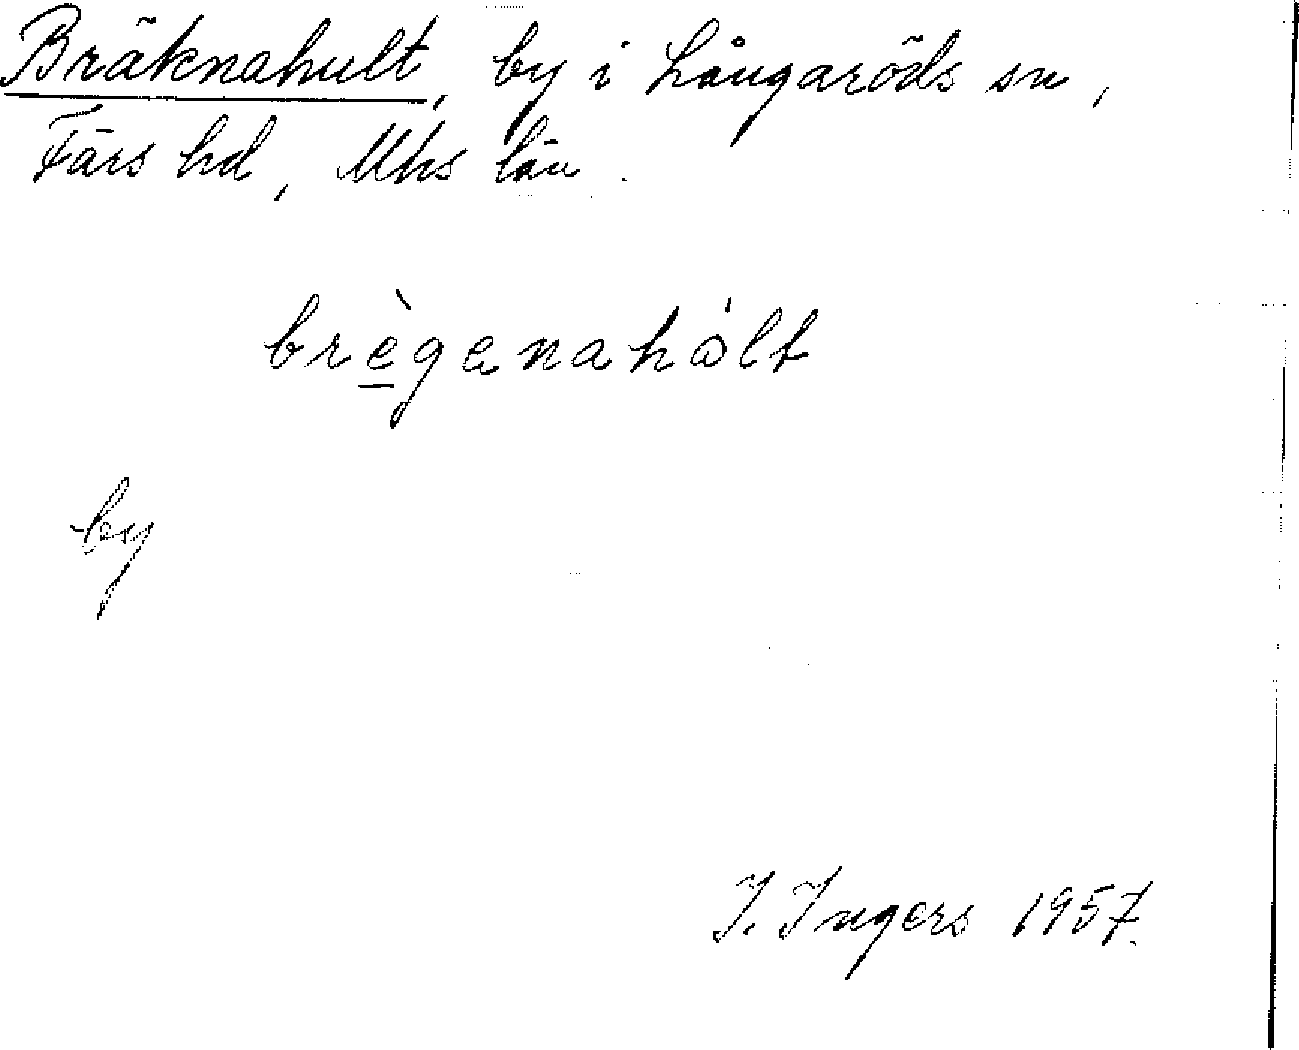 Bräknahult, by i Långaröds sn,
Färs hd, Mhs län.
brègenahólt
by
I. Ingers 1957.